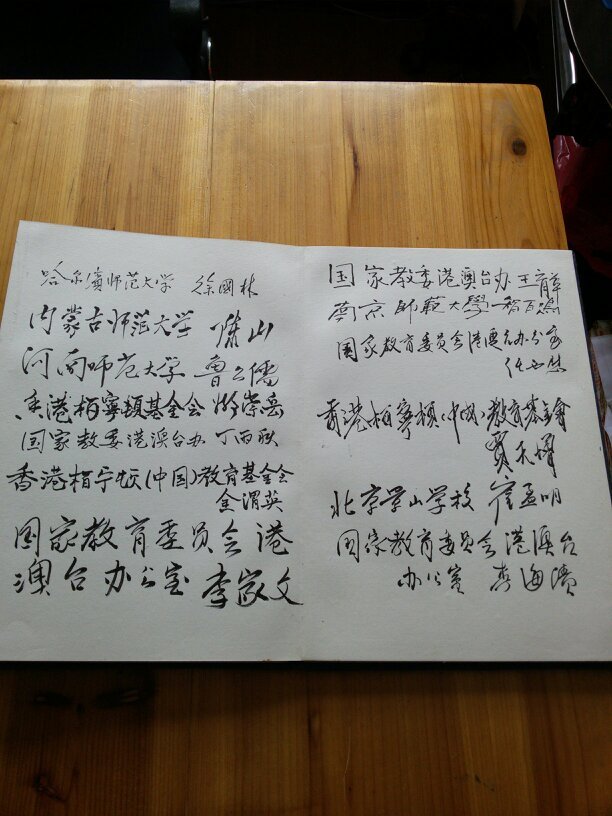 哈尔滨师范大学 徐國林
内蒙古师范大学 陈山
河南师范大学 鲁公儒
香港柏寧頓基金会 崇岳
国家教委港澳台办 丁雨秋
香港柏宁顿(中国)教育基金会
金渭英
国家教育委员会港
澳台办公室 李家文
国家教委港澳台办 王
南京師範大學
国家教育委员会港澳台办公室
任
香港柏寧頓(中国)教育基金會
贾
北京景山学校 崔孟明
国家教育委员会港澳台
办公室 李海濱